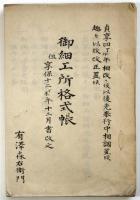 貞享四丁卯年相改、夫以後先奉行中相調置候
趣を以致改正置候
御細工所格式帳
但享保十二未年十二月書改之
有澤森右衛門